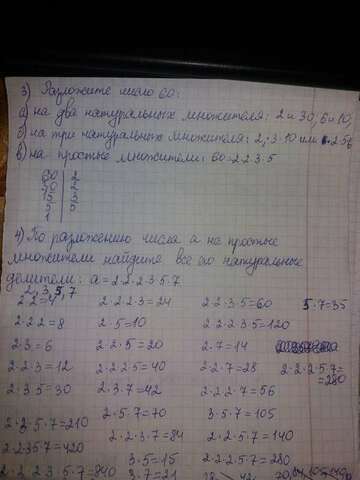 3) Разложите число 60:
а) на два натуральных множителя: 2 и 30, 6 и 10
б) на три натуральных множителя: 2·3·10 или 2·5·6
в) на простые множители: 60=2·2·3·5
60 | 2
30 | 2
15 | 3
5 | 5
1
4) По разложению числа а на простые
множители найдите все его натуральные
делители: а=2·2·2·3·5·7
2, 3, 5, 7
2·2=4 2·2·2·3=24 2·2·3·5=60 5·7=35
2·2·2=8 2·5=10 2·2·2·3·5=120
2·3=6 2·2·5=20 2·7=14
2·2·3=12 2·2·2·5=40 2·2·7=28 2·2·2·5·7=
=280
2·3·5=30 2·3·7=42 2·2·2·7=56
2·5·7=70 3·5·7=105
2·3·5·7=210
2·2·3·7=84 2·2·5·7=140
2·2·3·5·7=420
3·5=15 2·2·2·5·7=280
2·2·2·3·5·7=840 3·7=21